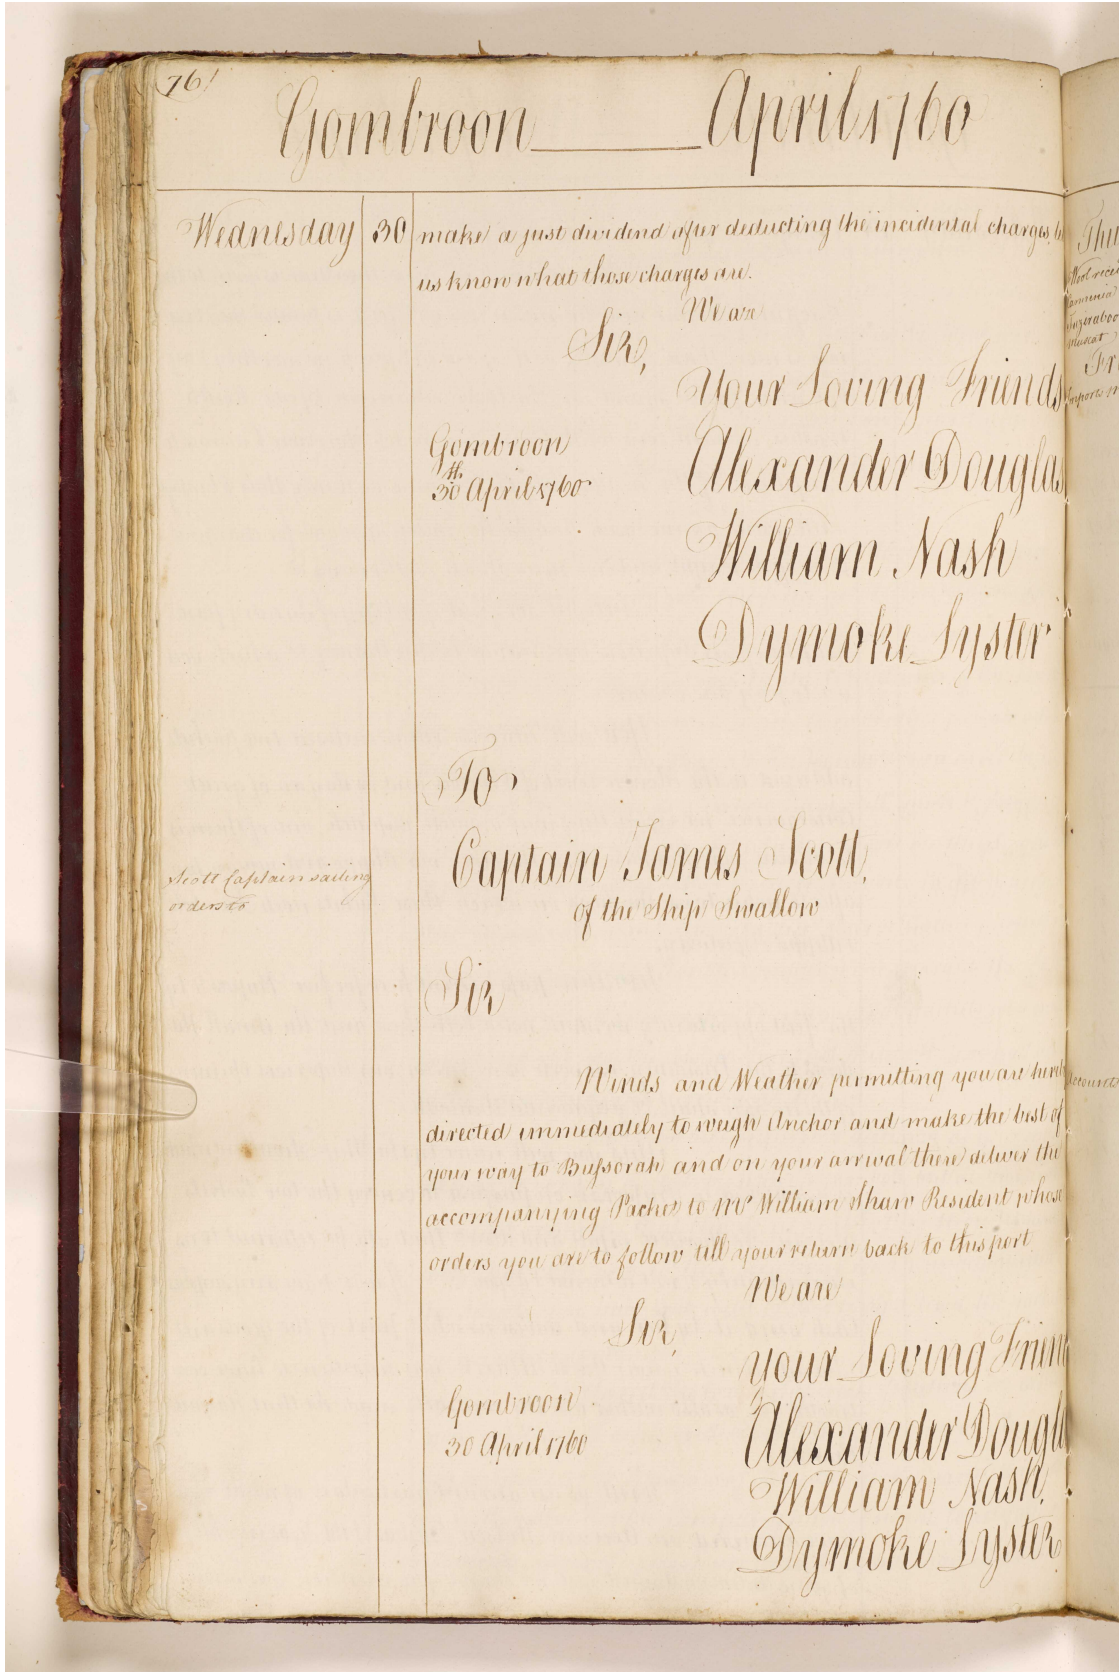 76
Gombroon April 1760
Wednesday 30 make a just dividend after deducting the incidental charges,
us know what those charges are.
We are
Sir,
Your Loving Friends
Gombroon
30th April 1760
Alexander Douglas
William Nash
Dymoke Lyster
To
Captain James Scott,
of the Ship Swallow
Scott Captain sailing
orders to
Sir
Winds and Weather permitting you are
directed immediately to weigh Anchor and make the best of
your way to Bussorah and on your arrival there deliver the
accompanying Packet to Mr William Shaw Resident whose
orders you are to follow till your return back to this port
We are
Sir,
Your Loving
Gombroon
30 April 1760
Alexander
William Nash,
Dymoke Lyster